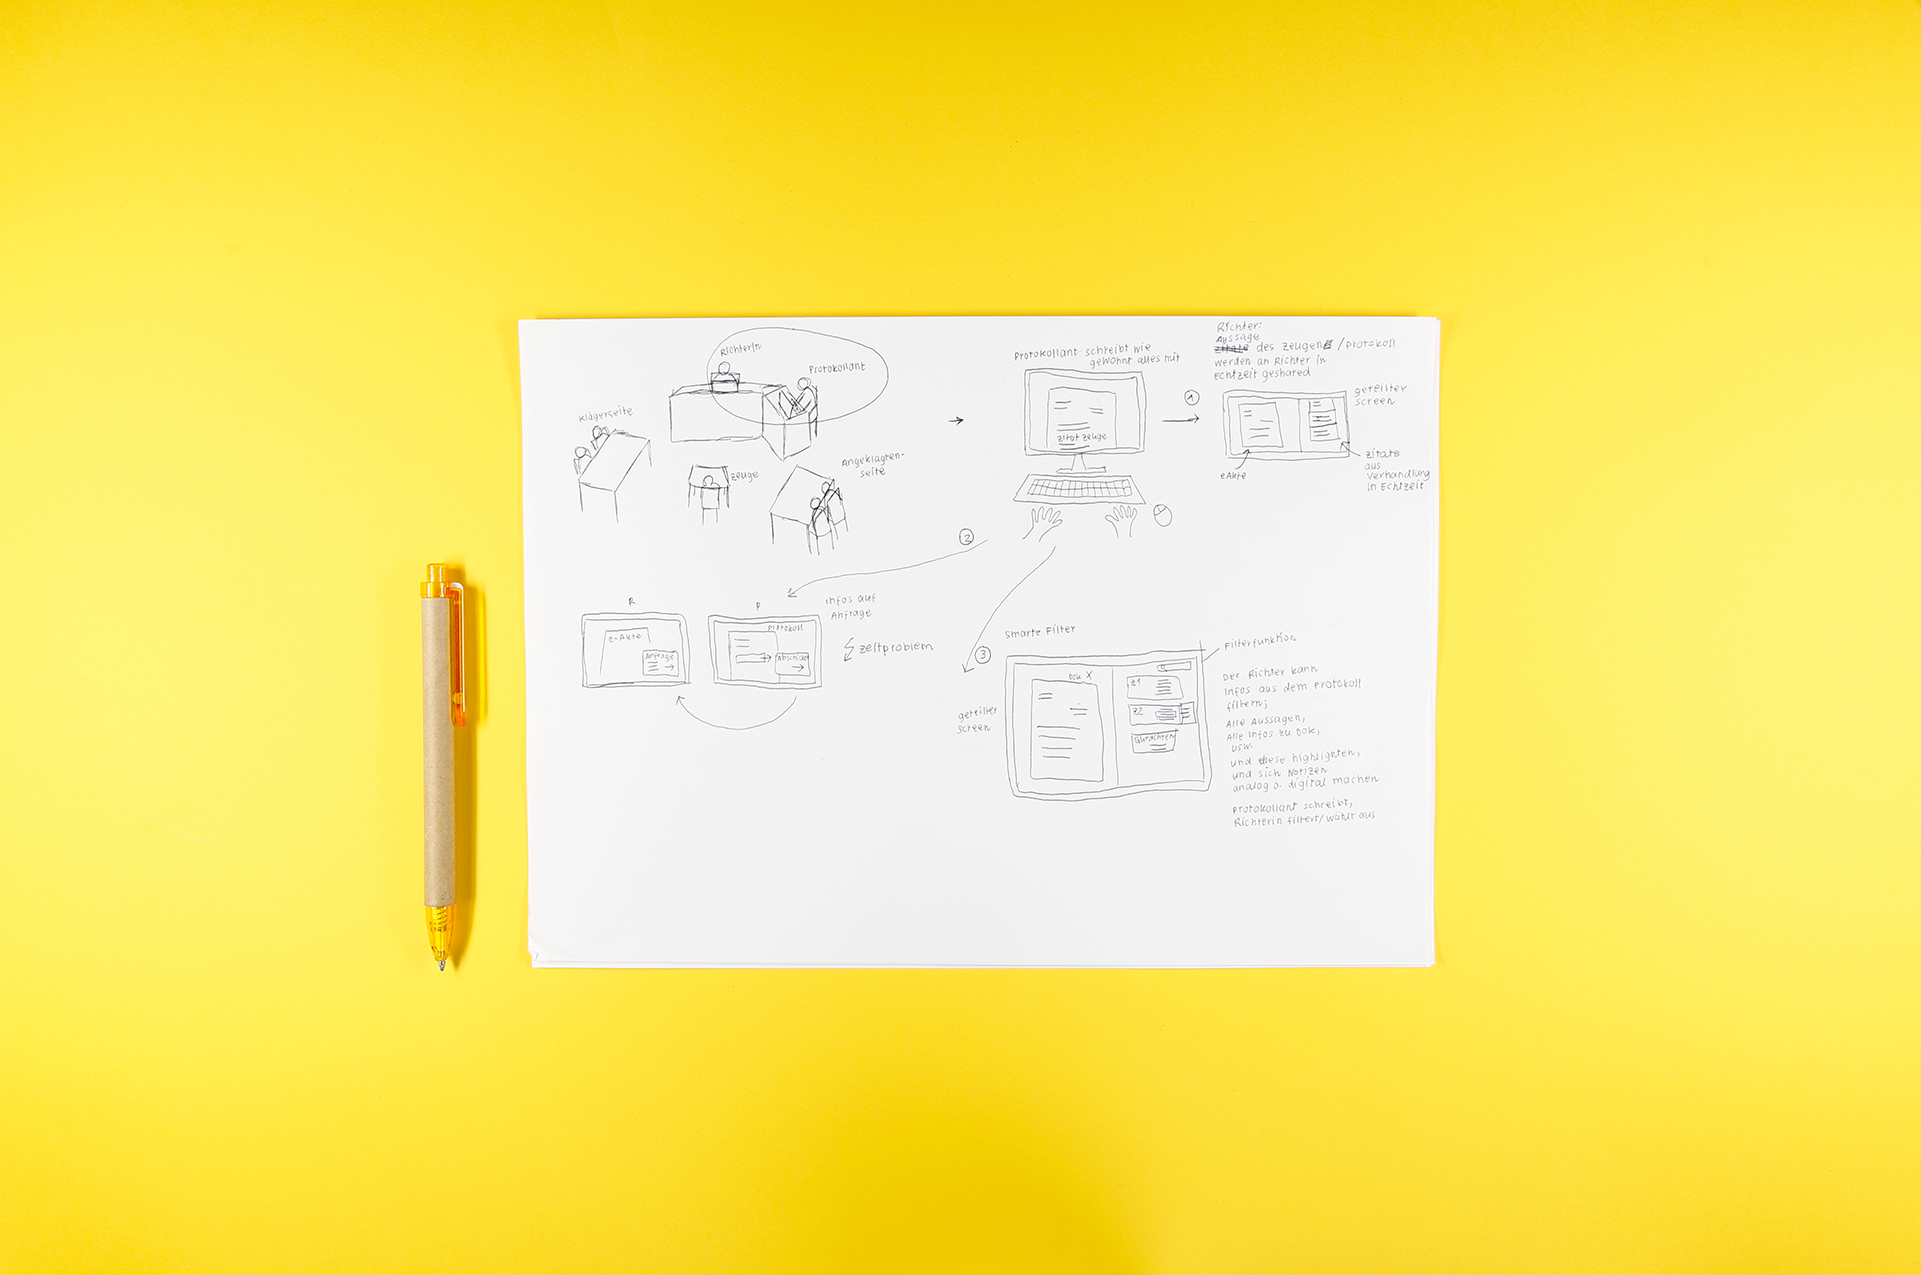 Richterin
Protokollant
Klägerseite
Zeuge
Angeklagten-
seite
Protokollant schreibt wie
gewohnt alles mit
Zitat Zeuge
1
Richter:
Aussage
Zitate des Zeugen /Protokoll
werden an Richter in
Echtzeit geshared
geteilter
screen
eAkte
Zitate
aus
Verhandlung
in Echtzeit
2
R
e-Akte
Anfrage
P
Protokoll
Abschicken
Infos auf
Anfrage
Zeitproblem
3
Smarte Filter
geteilter
screen
Dok X
Z1
Z2
Gutachten
Filterfunktion
Der Richter kann
Infos aus dem Protokoll
filtern;
Alle Aussagen,
Alle Infos zu Dok,
usw.
und diese highlighten,
und sich Notizen
analog o. digital machen
Protokollant schreibt,
Richterin filtert/wählt aus